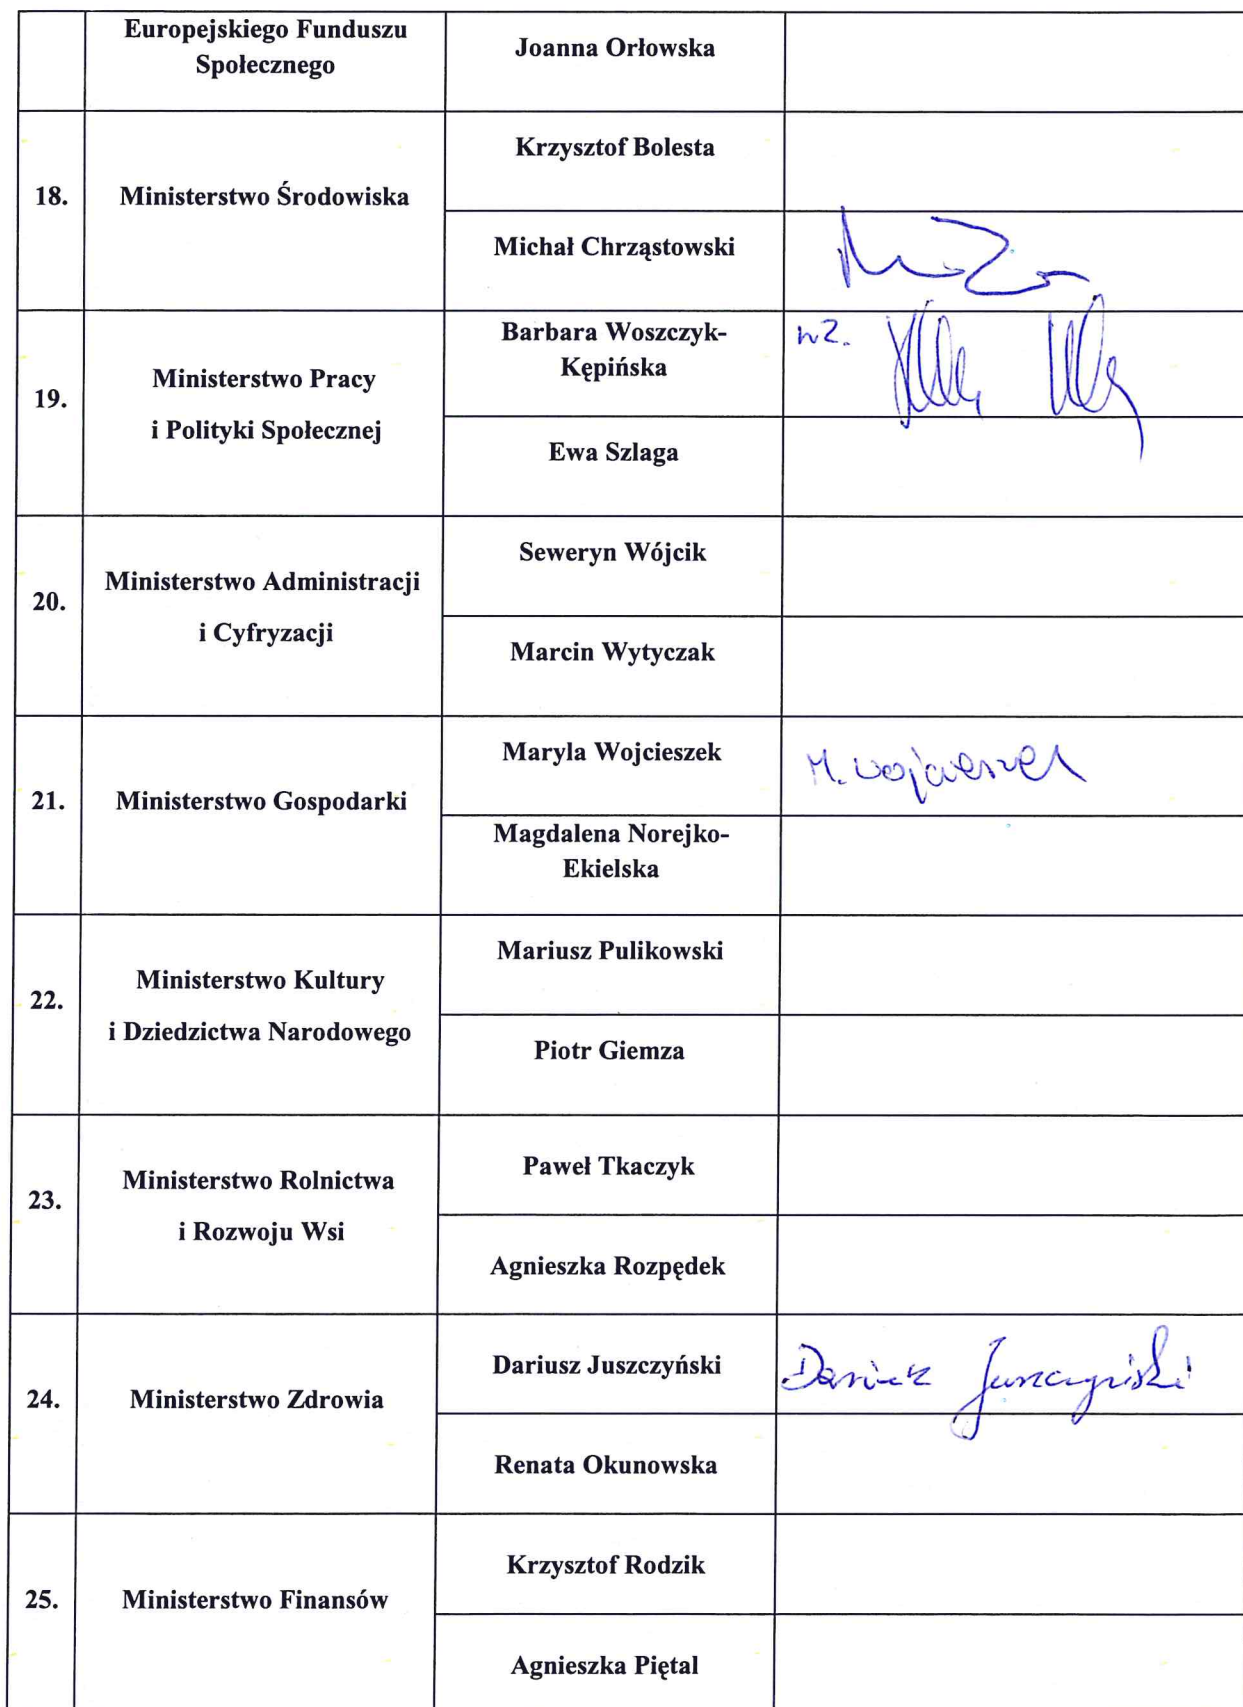 Europejskiego Funduszu
Społecznego
Joanna Orłowska
18.
Ministerstwo Środowiska
Krzysztof Bolesta
Michał Chrząstowski
19.
Ministerstwo Pracy
i Polityki Społecznej
Barbara Woszczyk-
Kępińska
Ewa Szlaga
20.
Ministerstwo Administracji
i Cyfryzacji
Seweryn Wójcik
Marcin Wytyczak
21.
Ministerstwo Gospodarki
Maryla Wojcieszek
M. Wojcieszek
Magdalena Norejko-
Ekielska
22.
Ministerstwo Kultury
i Dziedzictwa Narodowego
Mariusz Pulikowski
Piotr Giemza
23.
Ministerstwo Rolnictwa
i Rozwoju Wsi
Paweł Tkaczyk
Agnieszka Rozpędek
24.
Ministerstwo Zdrowia
Dariusz Juszczyński
Dariusz Juszczyński
Renata Okunowska
25.
Ministerstwo Finansów
Krzysztof Rodzik
Agnieszka Piętal